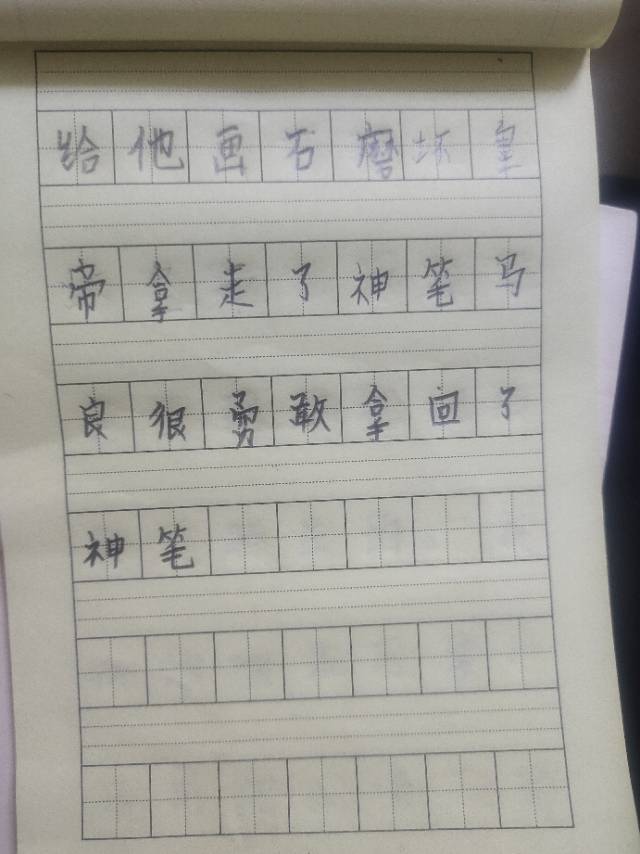 给他画石磨坏皇
帝拿走了神笔马
良很勇敢拿回了
神笔